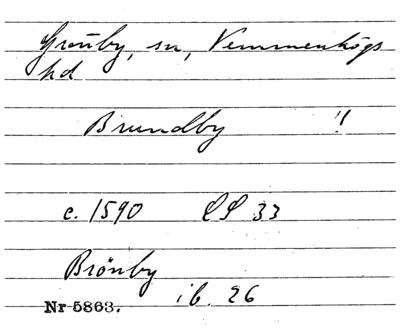 Grönby, sn, Vemmenhögs
hd
Brundby !!
c. 1590 LS 33
Brönby
ib. 26
Nr 5863.